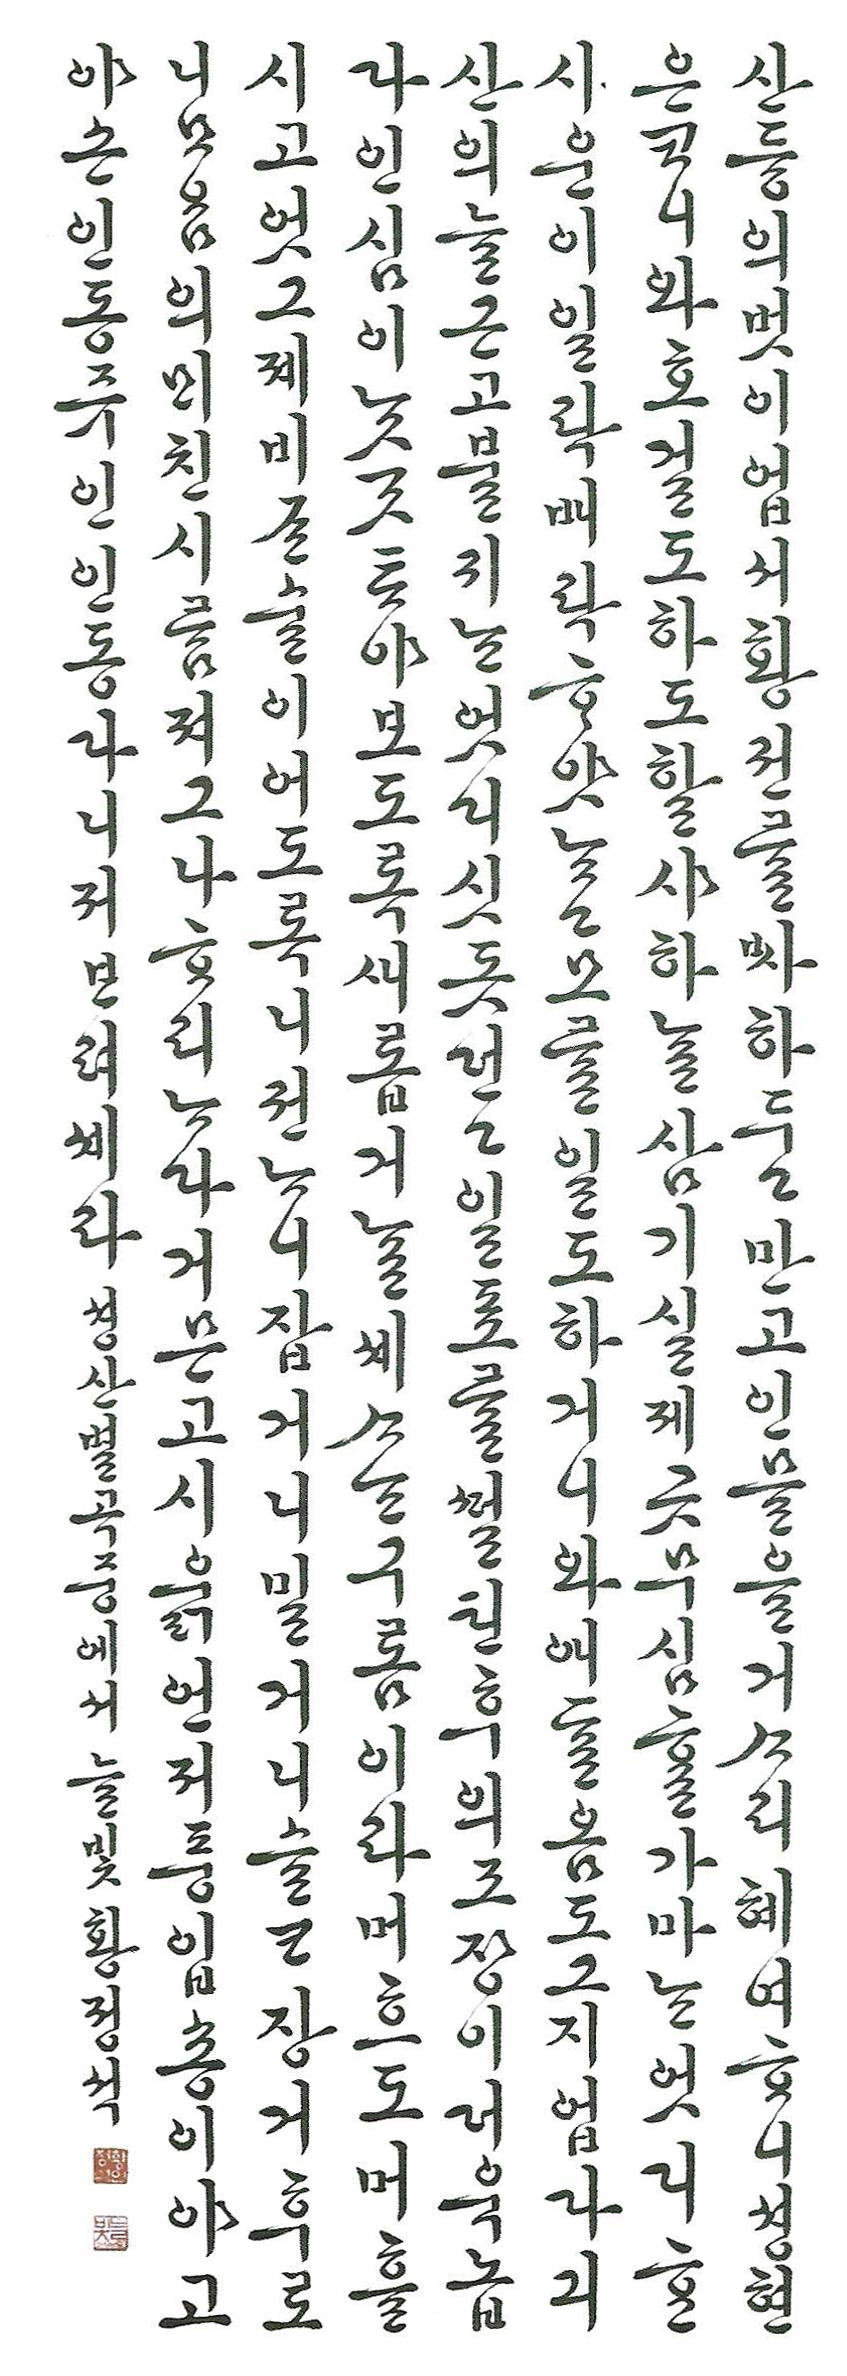 산듕의벗이업서황권를ᄡᅡ하두고만고인믈을거ᄉᆞ리혜여ᄒᆞ니셩현
은ᄏᆞ니와호걸도하도할샤하ᄂᆞᆯ삼기실제곳무심ᄒᆞᆯ가마ᄂᆞᆫ엇디ᄒᆞᆫ
시운이일락배락ᄒᆞ얏ᄂᆞᆫ고모ᄅᆞᆯ일도하거니와애ᄃᆞᆯ옴도그지업다긔
산의늘근고블귀ᄂᆞᆫ엇디싯돗던고일표ᄅᆞᆯᄠᅥᆯ틴후의조장이더옥놉
다인심이ᄂᆞᆺᄀᆞᆺᄐᆞ야보도록새롭거ᄂᆞᆯ셰ᄉᆞᄂᆞᆫ구롬이라머흐도머흘
시고엇그제비즌술이어도록니건ᄂᆞ니잡거니밀거니슬ᄏᆞ장거후로
니ᄆᆞ음의ᄆᆡ친시름져그나ᄒᆞ리ᄂᆞ다거믄고시욹언저풍입숑이야고
야손인동쥬인인동다니저ᄇᆞ려셰라 셩산별곡중에서 늘빛 황정석